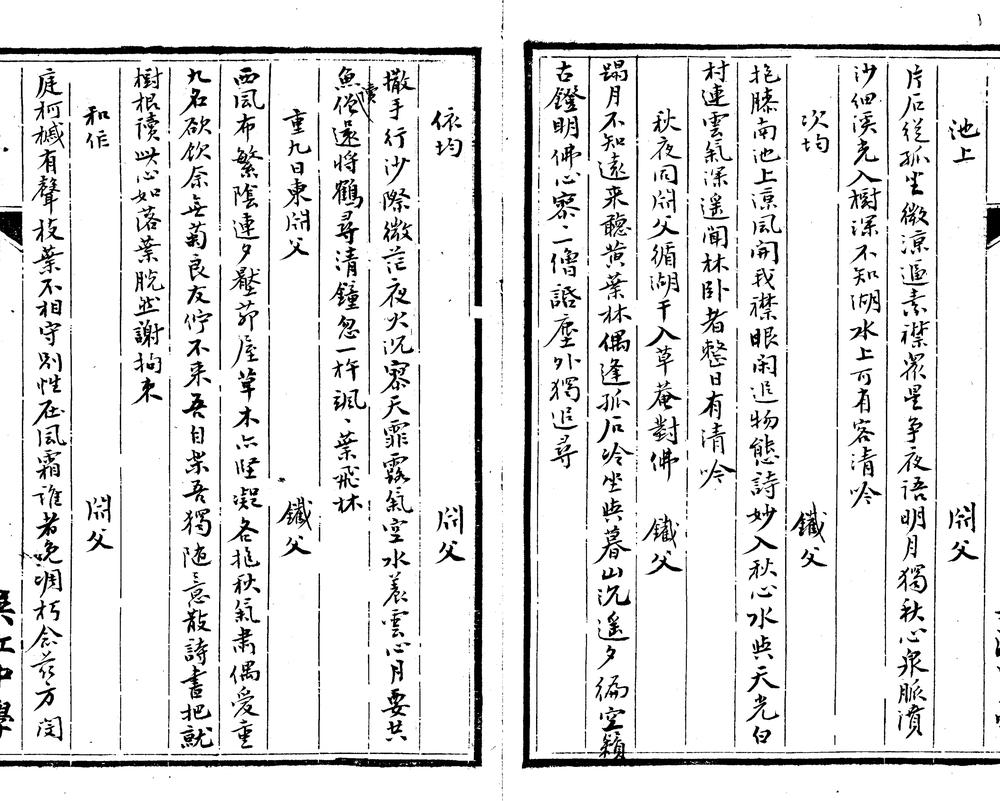 池上 閎父
片石從孤坐微涼逼素襟眾星爭夜語明月獨秋心泉脈漬
沙細溪光入樹深不知湖水上可有客清吟
次均 鐵父
抱膝南池上涼風開我襟眼閑追物態詩妙入秋心水與天光白
村連雲氣深遙聞林臥者整日有清吟
秋夜同閎父循湖干入草菴對佛 鐵父
蹋月不知遠來聽黃葉林偶逢孤石冷坐與暮山沉遙夕徧空籟
古鐙明佛心寥二僧語塵外獨追尋
依均 閎父
撒手行沙際微茫夜火沉寥天霏露氣空水養雲心月要共
魚僧還將鶴尋清鐘忽一杵颯、葉飛林
讀
重九日東閎父 鐵父
西風布繁陰連夕壓茆屋草木亦堅凝各抱秋氣肅偶愛重
九名欲飲奈無菊良友佇不來吾自架吾獨隨意散詩書把就
樹根讀此心如落葉脫然謝拘束
和作 閎父
庭柯槭有聲枝葉不相守別性在風霜誰者免凋朽念茲方閉
吳江中學